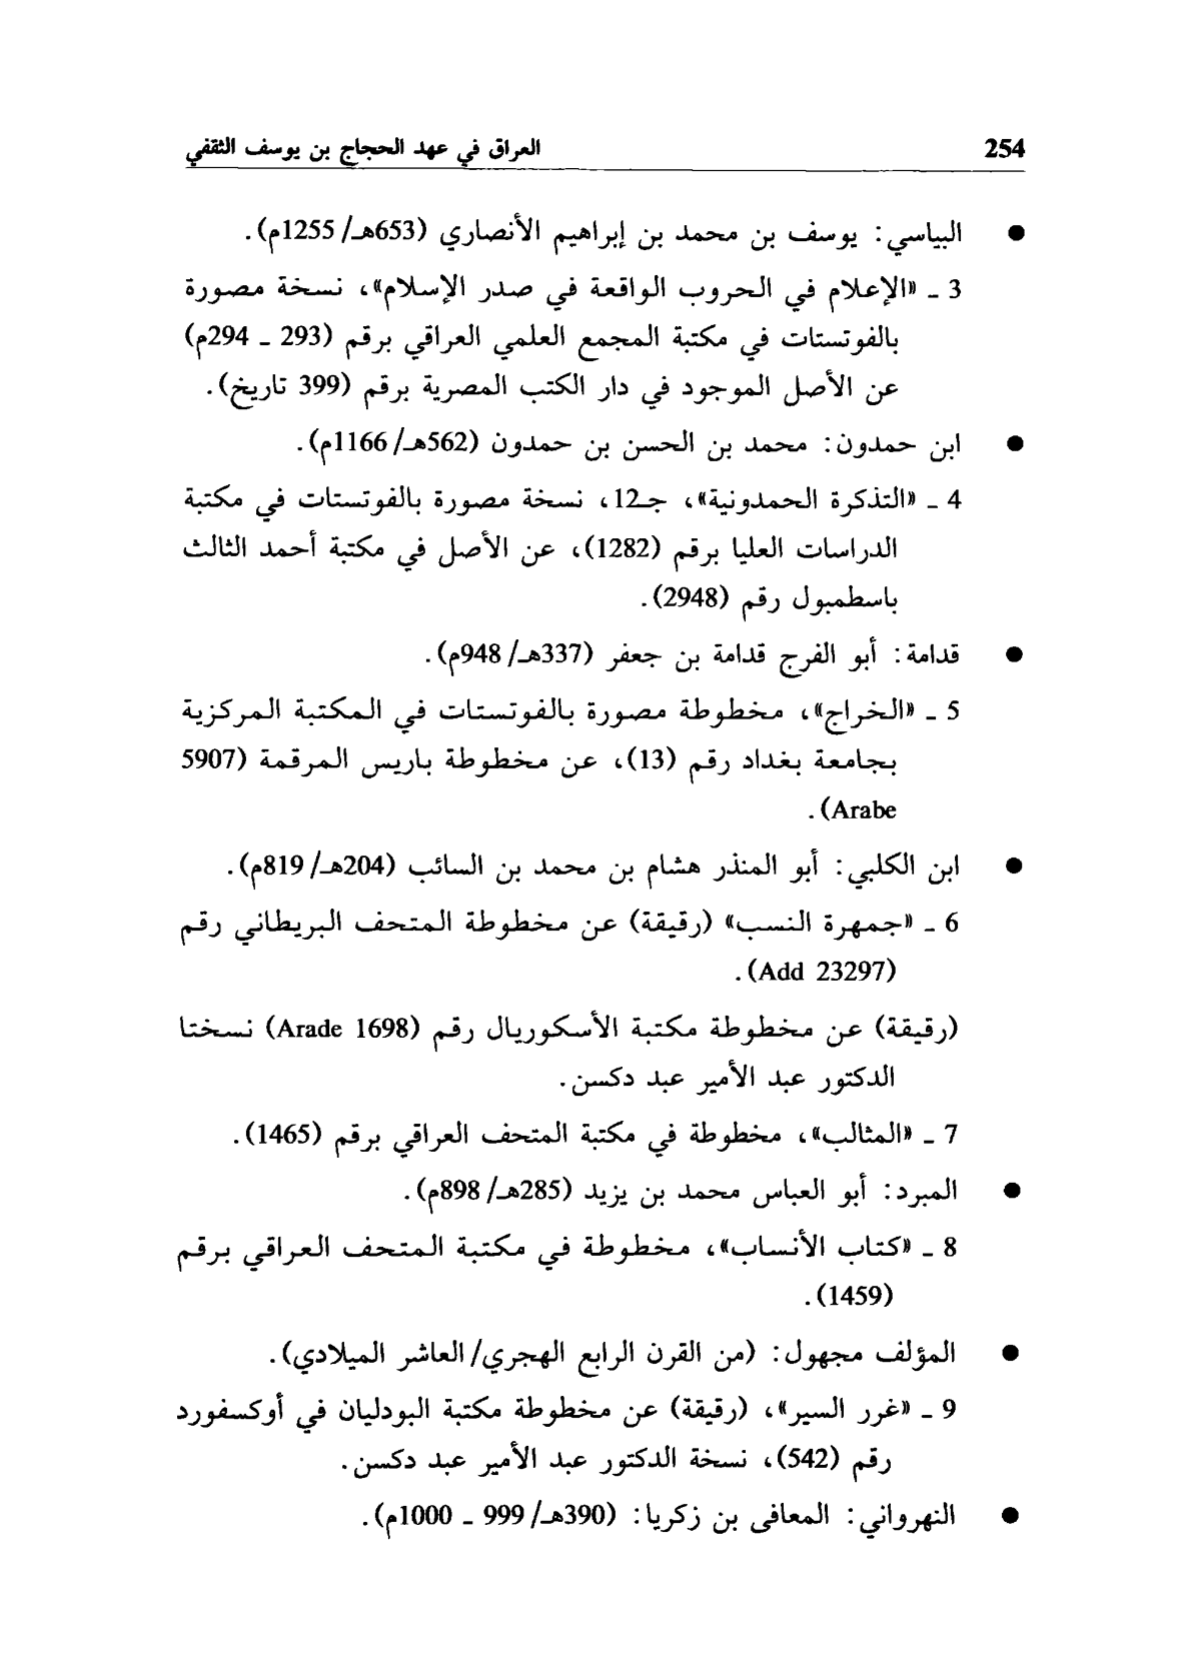 254 العراق في عهد الحجاج بن يوسف الثقفي
● البياسي: يوسف بن محمد بن إبراهيم الأنصاري (653هـ/ 1255م).
3 ـ «الإعلام في الحروب الواقعة في صدر الإسلام»، نسخة مصورة
بالفوتستات في مكتبة المجمع العلمي العراقي برقم (293 ـ 294م)
عن الأصل الموجود في دار الكتب المصرية برقم (399 تاريخ).
● ابن حمدون: محمد بن الحسن بن حمدون (562هـ/ 1166م).
4 ـ «التذكرة الحمدونية»، جـ12، نسخة مصورة بالفوتستات في مكتبة
الدراسات العليا برقم (1282)، عن الأصل في مكتبة أحمد الثالث
باسطمبول رقم (2948).
● قدامة: أبو الفرج قدامة بن جعفر (337هـ/ 948م).
5 ـ «الخراج»، مخطوطة مصورة بالفوتستات في المكتبة المركزية
بجامعة بغداد رقم (13)، عن مخطوطة باريس المرقمة (5907
Arabe).
● ابن الكلبي: أبو المنذر هشام بن محمد بن السائب (204هـ/ 819م).
6 ـ «جمهرة النسب» (رقيقة) عن مخطوطة المتحف البريطاني رقم
(Add 23297).
(رقيقة) عن مخطوطة مكتبة الأسكوريال رقم (Arade 1698) نسختا
الدكتور عبد الأمير عبد دكسن.
7 ـ «المثالب»، مخطوطة في مكتبة المتحف العراقي برقم (1465).
● المبرد: أبو العباس محمد بن يزيد (285هـ/ 898م).
8 ـ «كتاب الأنساب»، مخطوطة في مكتبة المتحف العراقي برقم
(1459).
● المؤلف مجهول: (من القرن الرابع الهجري/ العاشر الميلادي).
9 ـ «غرر السير»، (رقيقة) عن مخطوطة مكتبة البودليان في أوكسفورد
رقم (542)، نسخة الدكتور عبد الأمير عبد دكسن.
● النهرواني: المعافى بن زكريا: (390هـ/ 999 ـ 1000م).